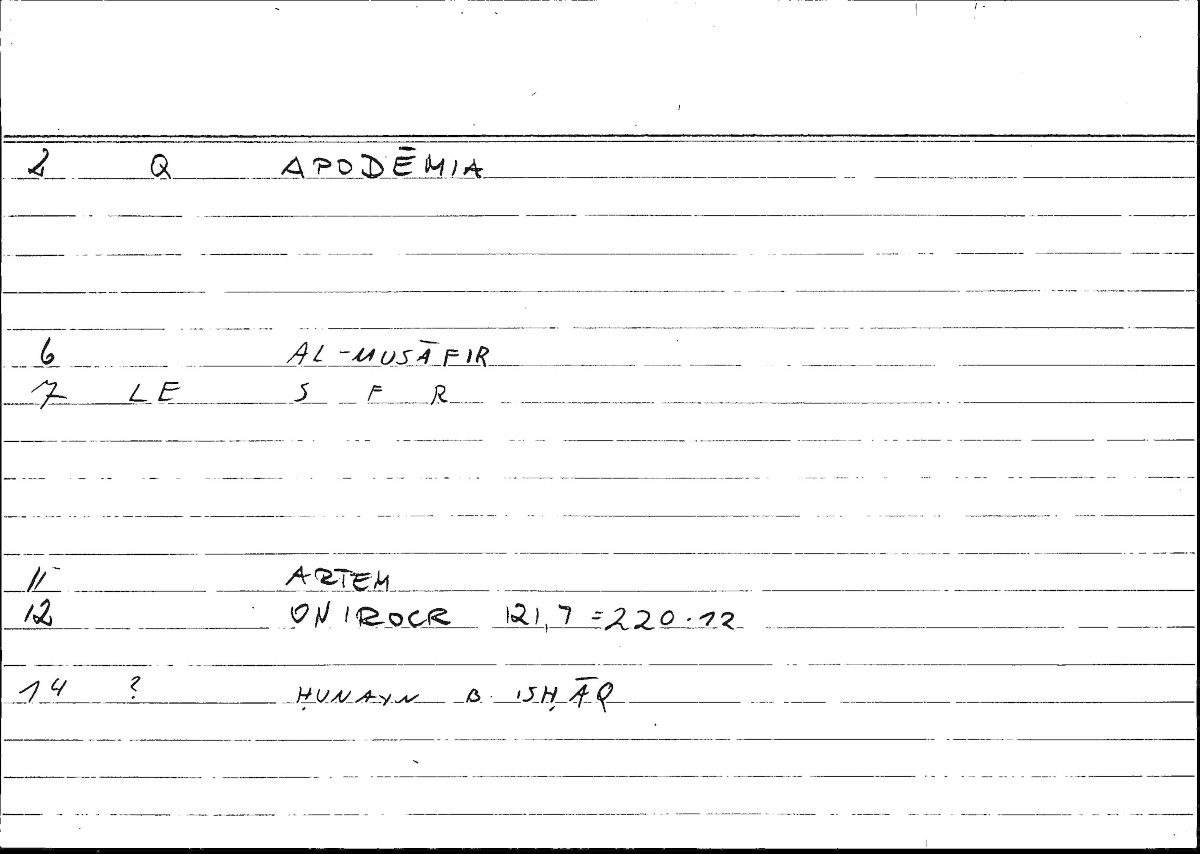 2 Q APODĒMIA
6 AL-MUSĀFIR
7 LE S F R
11 ARTEM
12 ONIROCR 121,7 = 220.12
14 ? ḤUNAYN B. ISḤĀQ